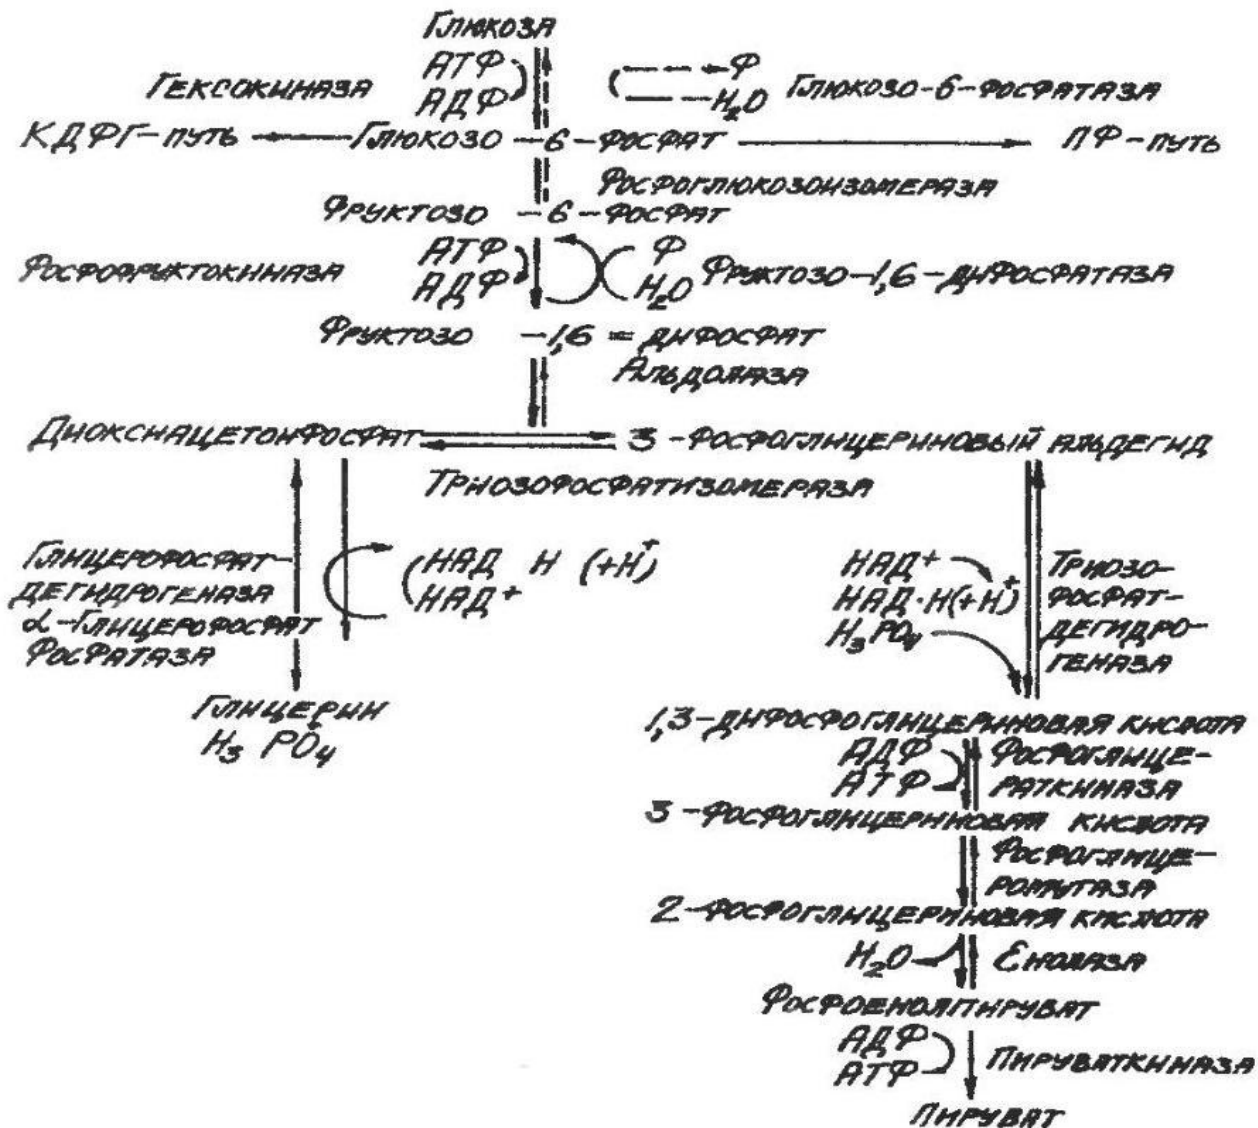 Глюкоза
АТФ
АДФ
Гексокиназа
Ф
H₂O
Глюкозо-6-фосфатаза
КДФГ-путь
Глюкозо-6-фосфат
ПФ-путь
Фосфоглюкозоизомераза
Фруктозо-6-фосфат
АТФ
АДФ
Фосфофруктокиназа
Ф
H₂O
Фруктозо-1,6-дифосфатаза
Фруктозо -1,6 = дифосфат
Альдолаза
Диоксиацетонфосфат
3-фосфоглицериновый альдегид
Триозофосфатизомераза
Глицерофосфат-
дегидрогеназа
α-Глицерофосфат
фосфатаза
НАД Н (+Н)⁺
НАД⁺
НАД⁺
НАД·Н(+Н)⁺
H₃PO₄
Триозо-
фосфат-
дегидро-
геназа
Глицерин
+
H₃ PO₄
1,3-дифосфоглицериновая кислота
АДФ
АТФ
Фосфоглице-
раткиназа
3-фосфоглицериновая кислота
Фосфоглице-
ромутаза
2-фосфоглицериновая кислота
H₂O
Енолаза
Фосфоенолпируват
АДФ
АТФ
Пируваткиназа
Пируват